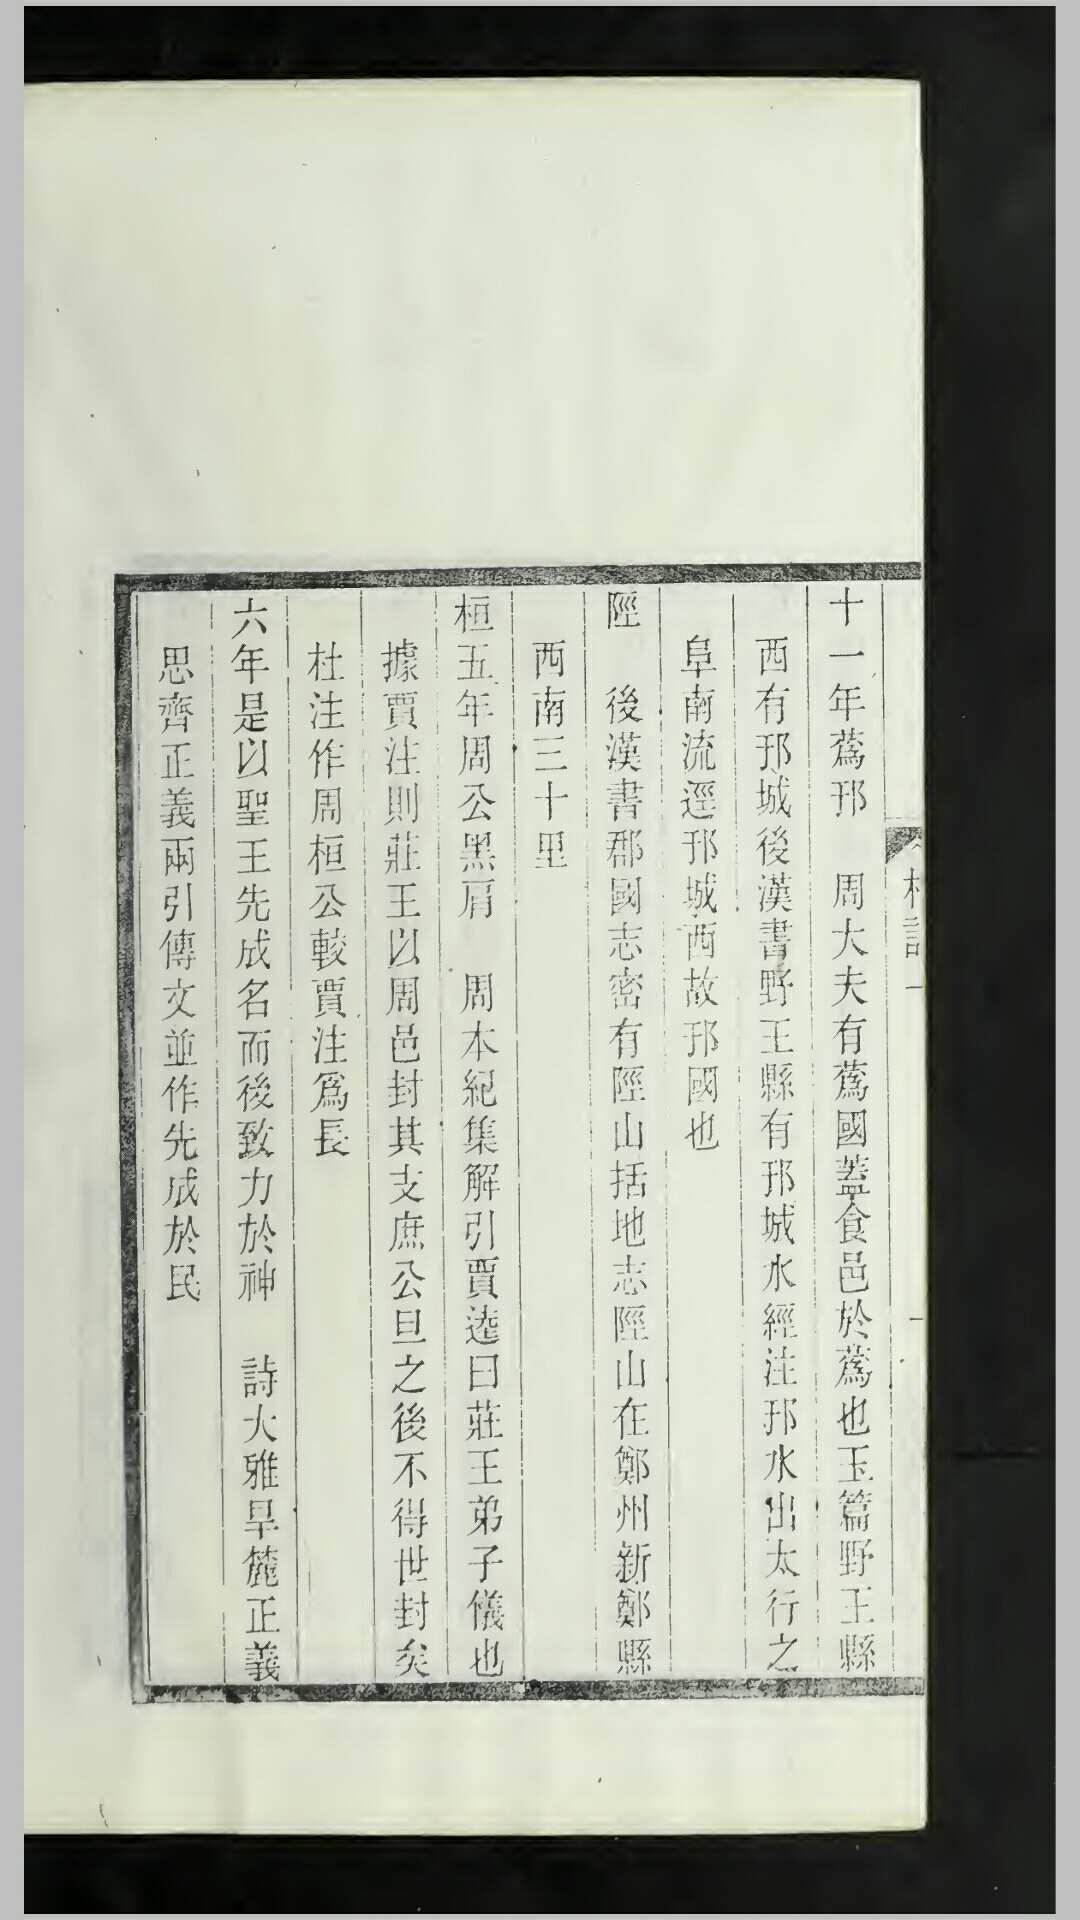 十一年蒍邘　周大夫有蒍國蓋食邑於蒍也玉篇野王縣
西有邘城後漢書野王縣有邘城水經注邘水出太行之
阜南流逕邘城西故邘國也
陘　後漢書郡國志密有陘山括地志陘山在鄭州新鄭縣
西南三十里
桓五年周公黑肩　周本紀集解引賈逵曰莊王弟子儀也
據賈注則莊王以周邑封其支庶公旦之後不得世封矣
杜注作周桓公較賈注爲長
六年是以聖王先成名而後致力於神　詩大雅旱麓正義
思齊正義兩引傳文並作先成於民